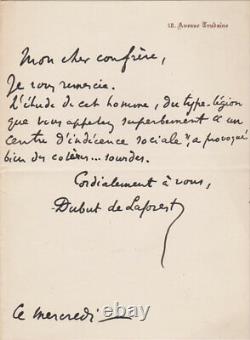 18, Avenue Trudaine
Mon cher confrère,
Je vous remercie.
L'étude de cet homme, du type-légion
que vous appelez superbement « un
centre d'indécence sociale », a provoqué
bien des colères... sourdes.
Cordialement à vous,
Dubut de Laforest
Ce mercredi
© thumbnails.com